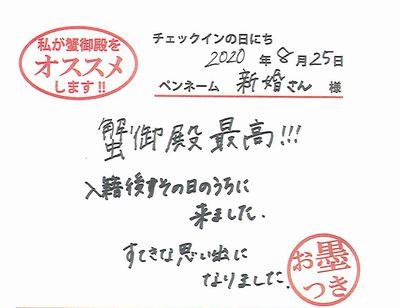 私が蟹御殿を
オススメ
します!!
チェックインの日にち
2020 年 8 月 25 日
ペンネーム 新婚さん 様
蟹御殿 最高!!!
入籍後すぐその日のうちに
来ました.
すてきな思い出に
なりました.
お墨
つき